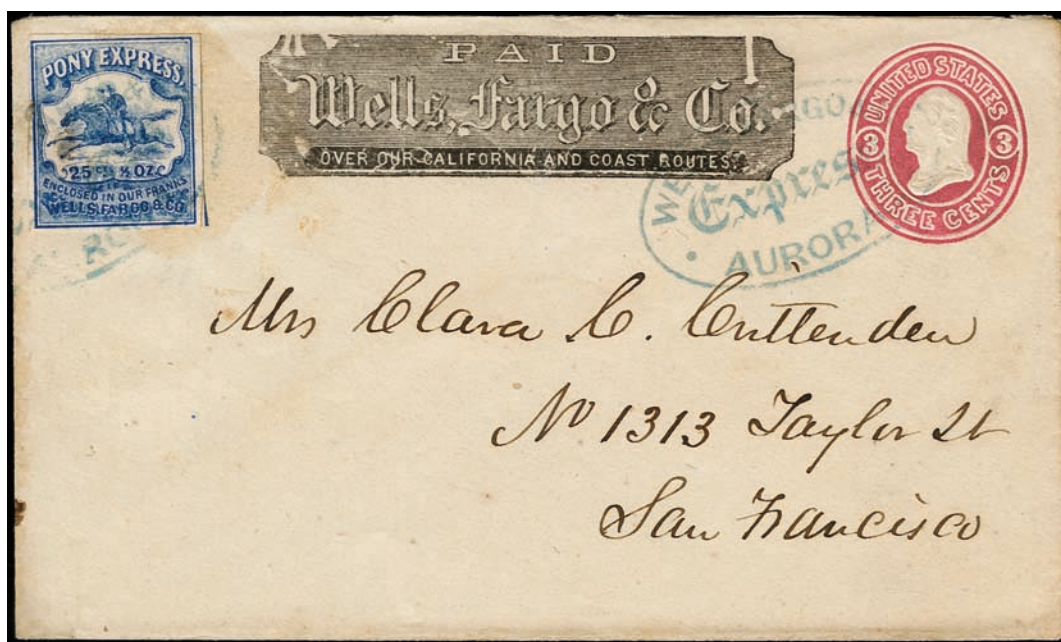 PONY EXPRESS.
25 Cts ½ OZ.
ENCLOSED IN OUR FRANKS
WELLS, FARGO & CO.
PAID
Wells, Fargo & Co.
OVER OUR CALIFORNIA AND COAST ROUTES.
UNITED STATES
3 3
THREE CENTS
Express
AURORA
Mrs Clara C. Crittenden
No 1313 Taylor St
San Francisco